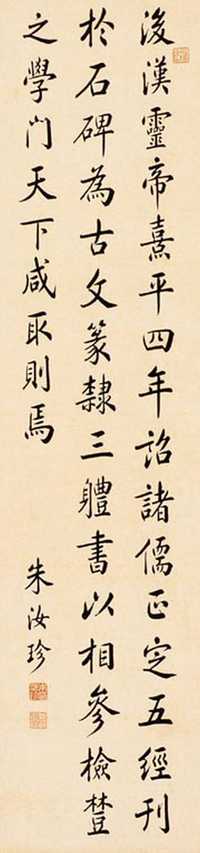 後漢靈帝熹平四年詔諸儒正定五經刊
於石碑為古文篆隸三體書以相參檢豎
之學門天下咸取則焉
朱汝珍